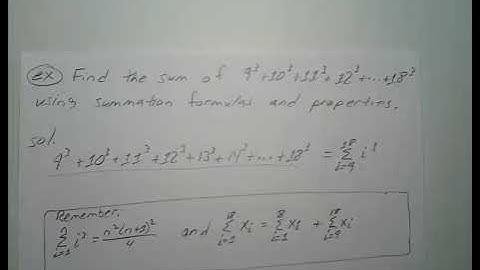 ex) Find the sum of 9³+10³+11³+12³+...+18³
using summation formulas and properties.
sol.
9³+10³+11³+12³+13³+14³+...+18³ = ∑_{i=9}^{18} i³
Remember.
∑_{i=1}^{n} i³ = n²(n+1)²/4 and ∑_{i=1}^{18} xᵢ = ∑_{i=1}^{8} xᵢ + ∑_{i=9}^{18} xᵢ